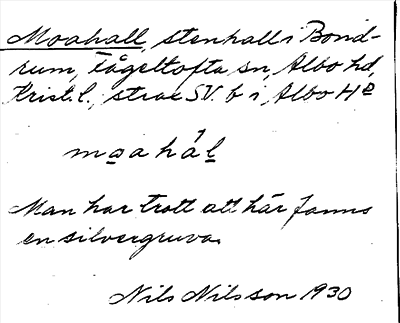 Moahall, stenhall i Bond-
rum, Fågeltofta sn, Albo hd,
Krist. l., strax SV. b i, Albo Hd
maahál
Man har trott att här fanns
en silvergruva.
Nils Nilsson 1930